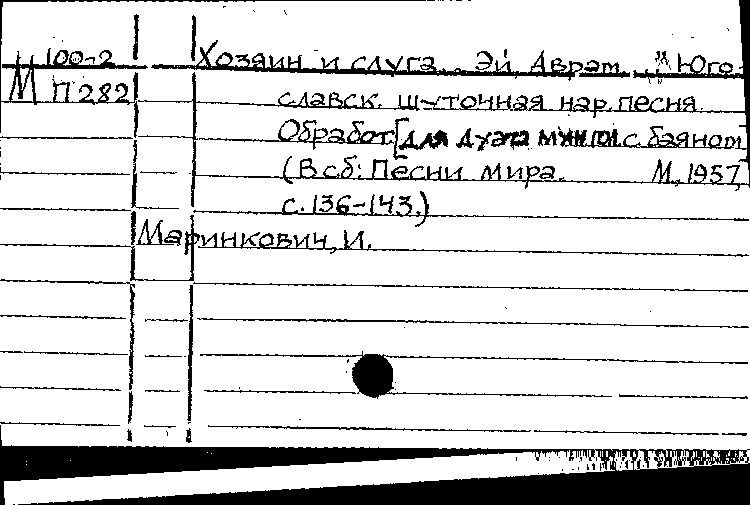 М 100-2 Хозяин и слуга. „Эй, Аврам..." Юго-
П282 славск. шуточная нар. песня.
Обработ. [для дуэта с. баяном
(В сб: Песни мира. М., 1957,
с. 136-143.)
Маринкович, И.